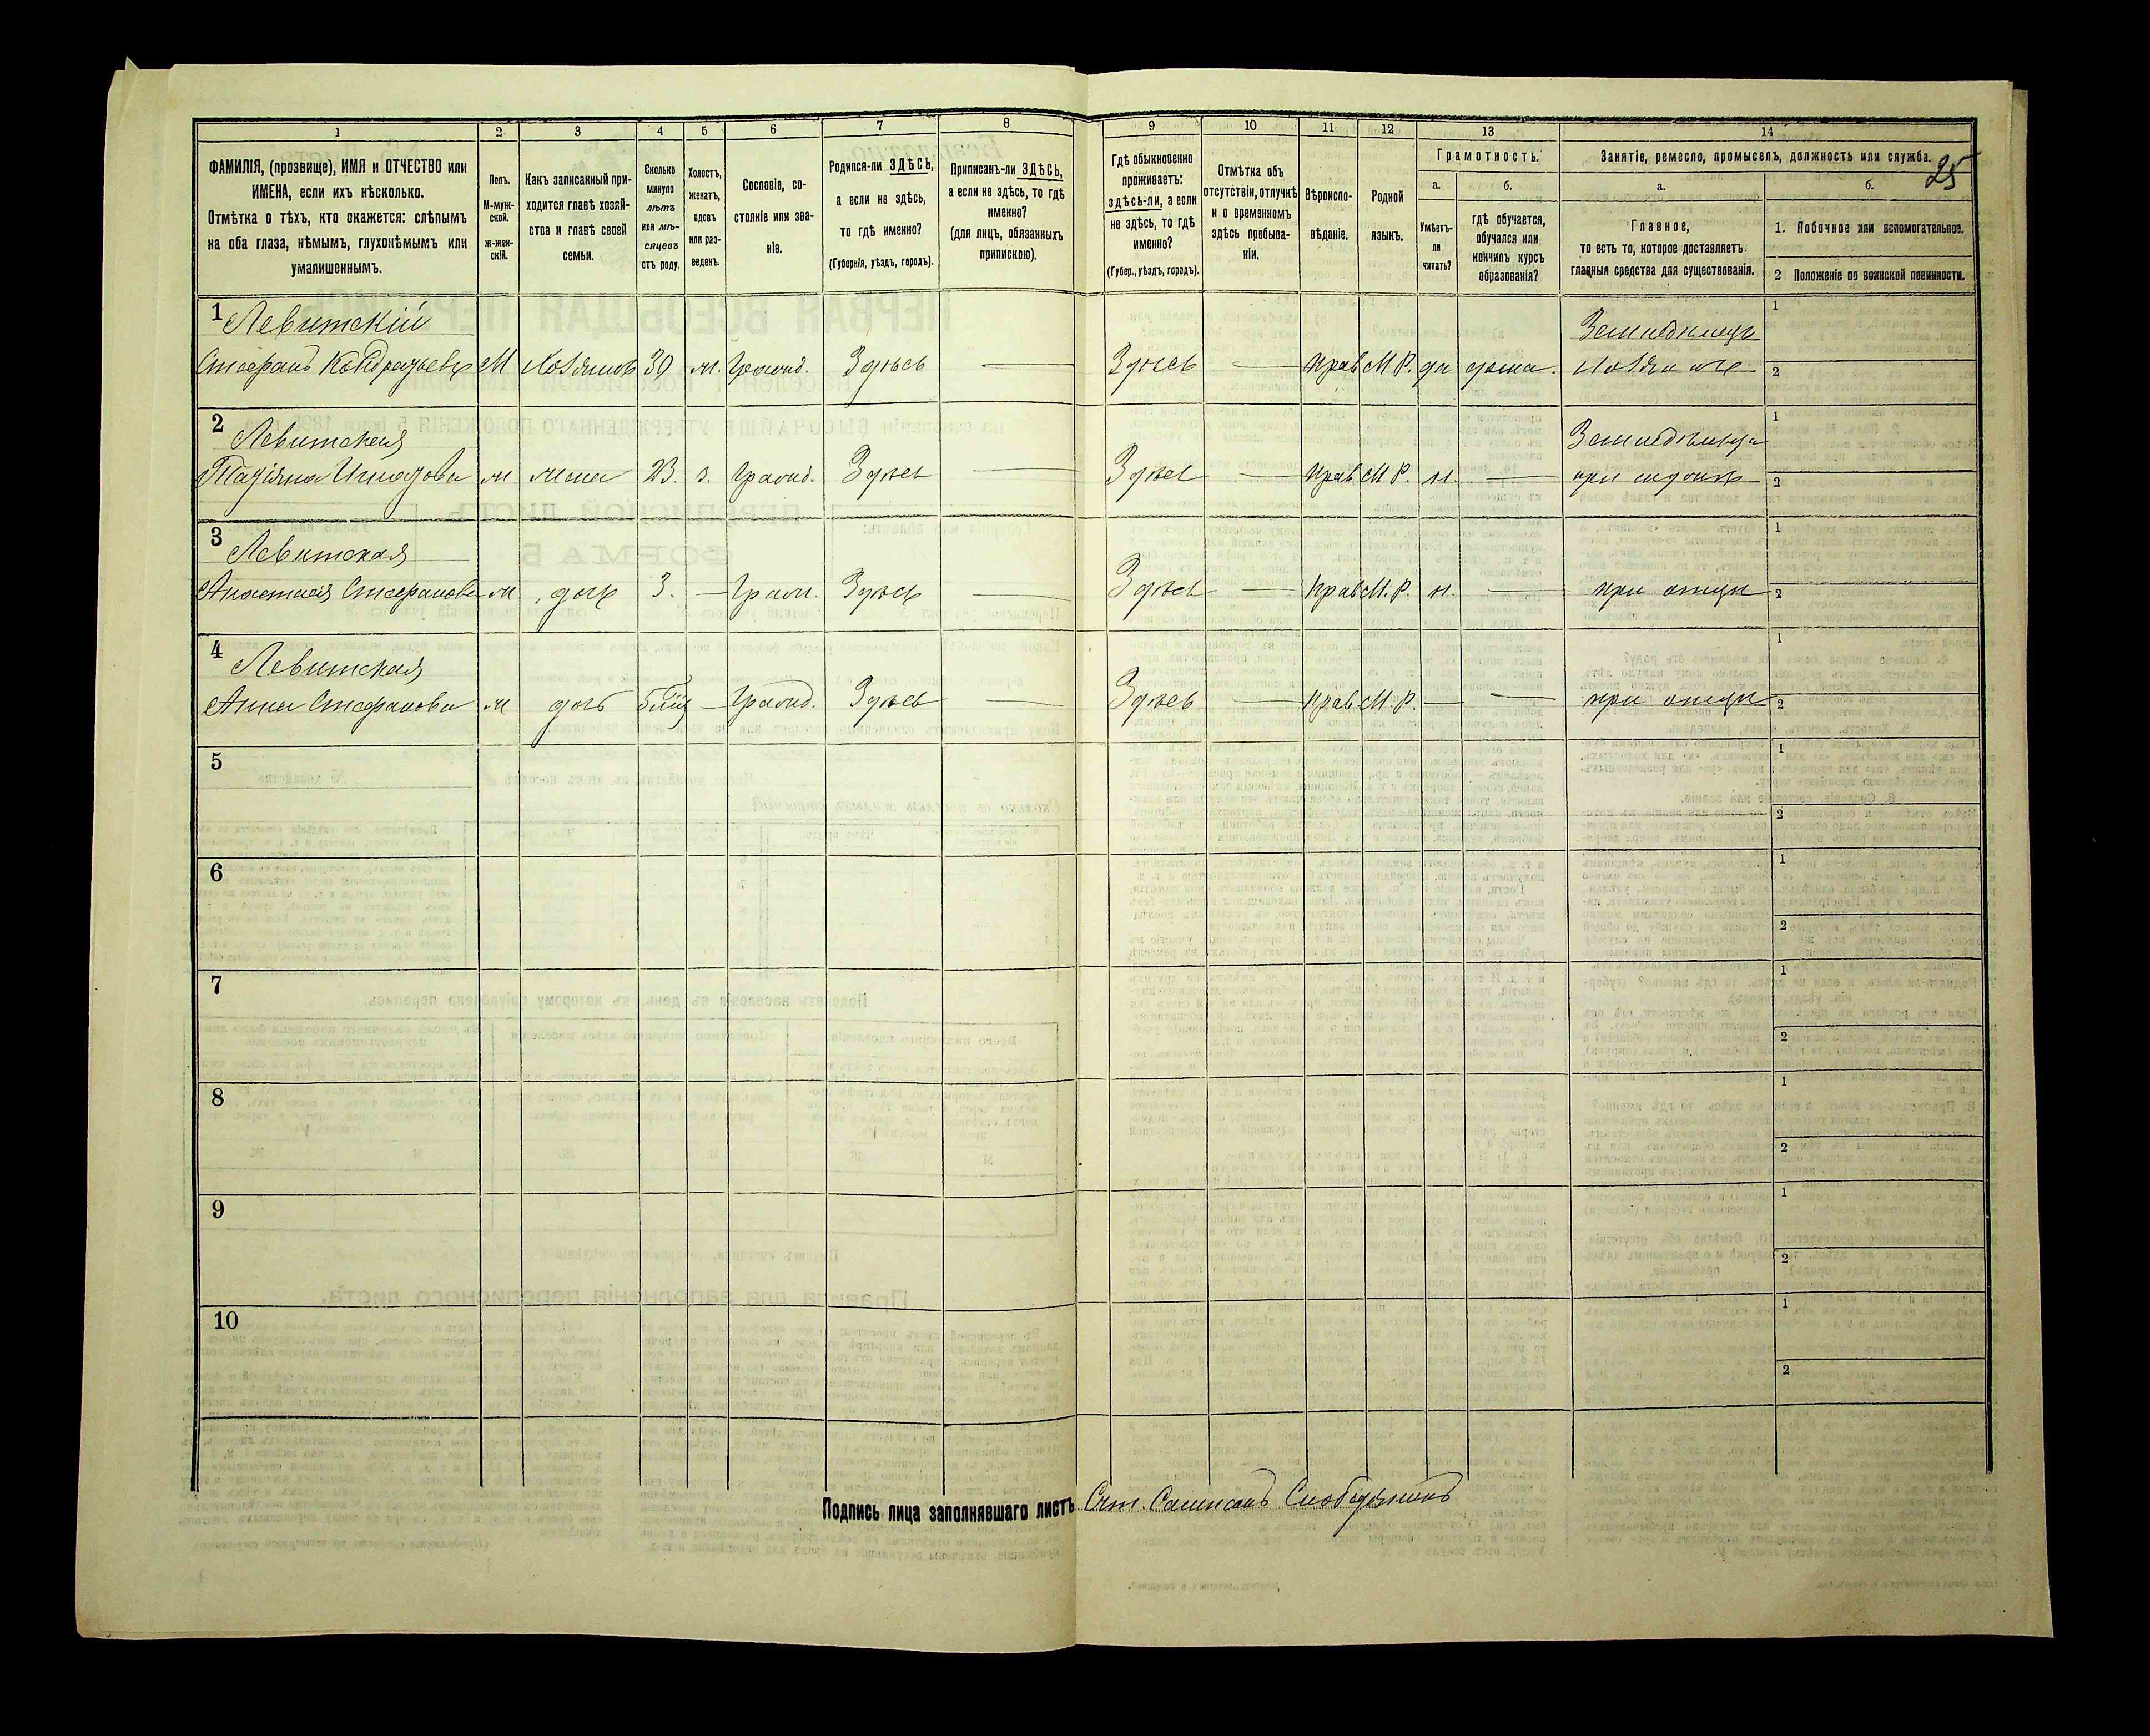 1 2 3 4 5 6 7 8 9 10 11 12 13 14
25
ФАМИЛІЯ, (прозвище), ИМЯ и ОТЧЕСТВО или
ИМЕНА, если ихъ нѣсколько.
Отмѣтка о тѣхъ, кто окажется: слѣпымъ
на оба глаза, нѣмымъ, глухонѣмымъ или
умалишеннымъ.
Полъ.
М-муж-
ской.
Ж-жен-
скій.
Какъ записанный при-
ходится главѣ хозяй-
ства и главѣ своей
семьи.
Сколько
минуло
лѣтъ
или мѣ-
сяцевъ
отъ роду.
Холостъ,
женатъ,
вдовъ
или раз-
веденъ.
Сословіе, со-
стояніе или зва-
ніе.
Родился-ли ЗДѢСЬ,
а если не здѣсь,
то гдѣ именно?
(Губернія, уѣздъ, городъ).
Приписанъ-ли ЗДѢСЬ,
а если не здѣсь, то гдѣ
именно?
(для лицъ, обязанныхъ
припискою).
Гдѣ обыкновенно
проживаетъ:
здѣсь-ли, а если
не здѣсь, то гдѣ
именно?
(Губер., уѣздъ, городъ).
Отмѣтка объ
отсутствіи, отлучкѣ
и о временномъ
здѣсь пребыва-
ніи.
Вѣроиспо-
вѣданіе.
Родной
языкъ.
Грамотность.
а.
Умѣетъ-
ли
читать?
б.
гдѣ обучается,
обучался или
кончилъ курсъ
образованія?
Занятіе, ремесло, промыселъ, должность или служба.
а.
Главное,
то есть то, которое доставляетъ
главныя средства для существованія.
б.
1. Побочное или вспомогательное.
2 Положеніе по воинской повинности.
1 Левитскій Земледѣлецъ 1
Стефанъ Кондратьевъ М хозяинъ 30 ж. Здѣсь — Здѣсь — Прав М Р. да дома. хозяинъ 2
2 Левитская 1
Татіяна Игнатова ж жена 23. з. Здѣсь — Здѣсь — Прав М Р. н. — при мужѣ 2
3 Левитская 1
Анастасія Стефанова ж дочь 3. — Здѣсь — Здѣсь — Прав М. Р. н. — при отцѣ 2
4 Левитская 1
Анна Стефанова ж дочь — Здѣсь — Здѣсь — Прав М. Р. — — при отцѣ 2
5 1
2
6 1
2
7 1
2
8 1
2
9 1
2
10 1
2
Подпись лица заполнявшаго листъ Счт.